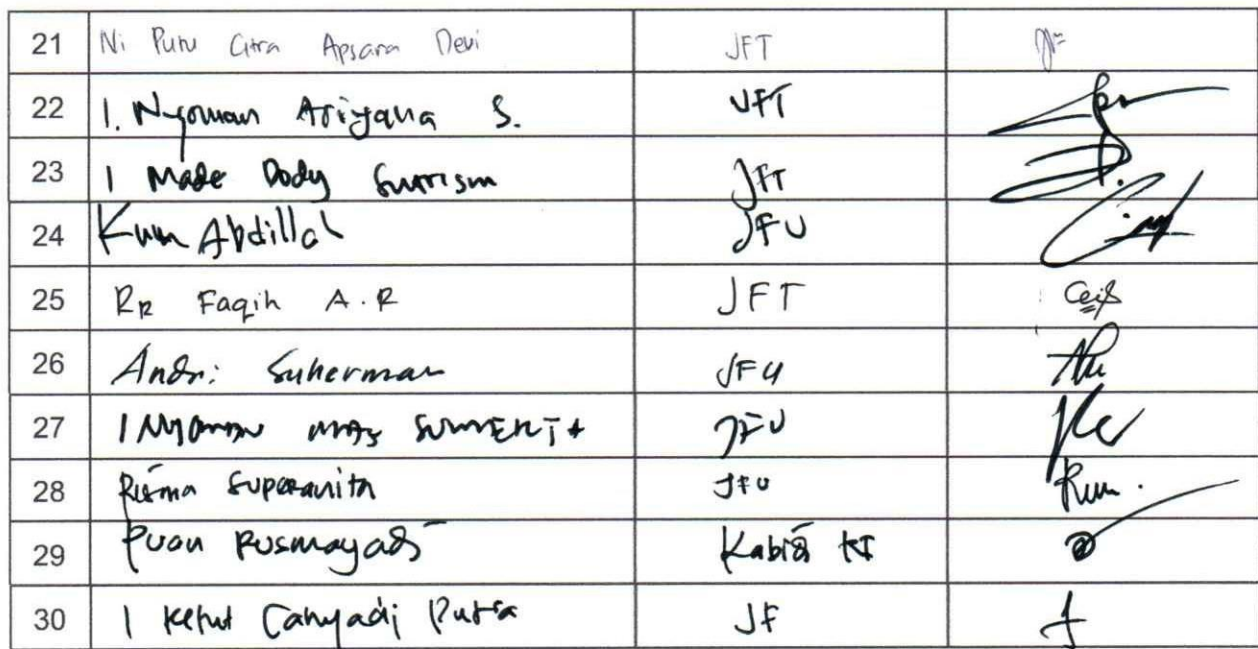 21 Ni Putu Citra Apsara Devi JFT
22 I. Nyoman Ariyana S. JFT
23 I Made Dody JFT
24 Abdillah JFU
25 RR Faqih A.R JFT
26 Andri Suherman JFU
27 I Nyoman Mas JFU
28 Risma Superanita JFU
29 Puan Rusmayadi Kabid KI
30 I Ketut Cahyadi Putra JF